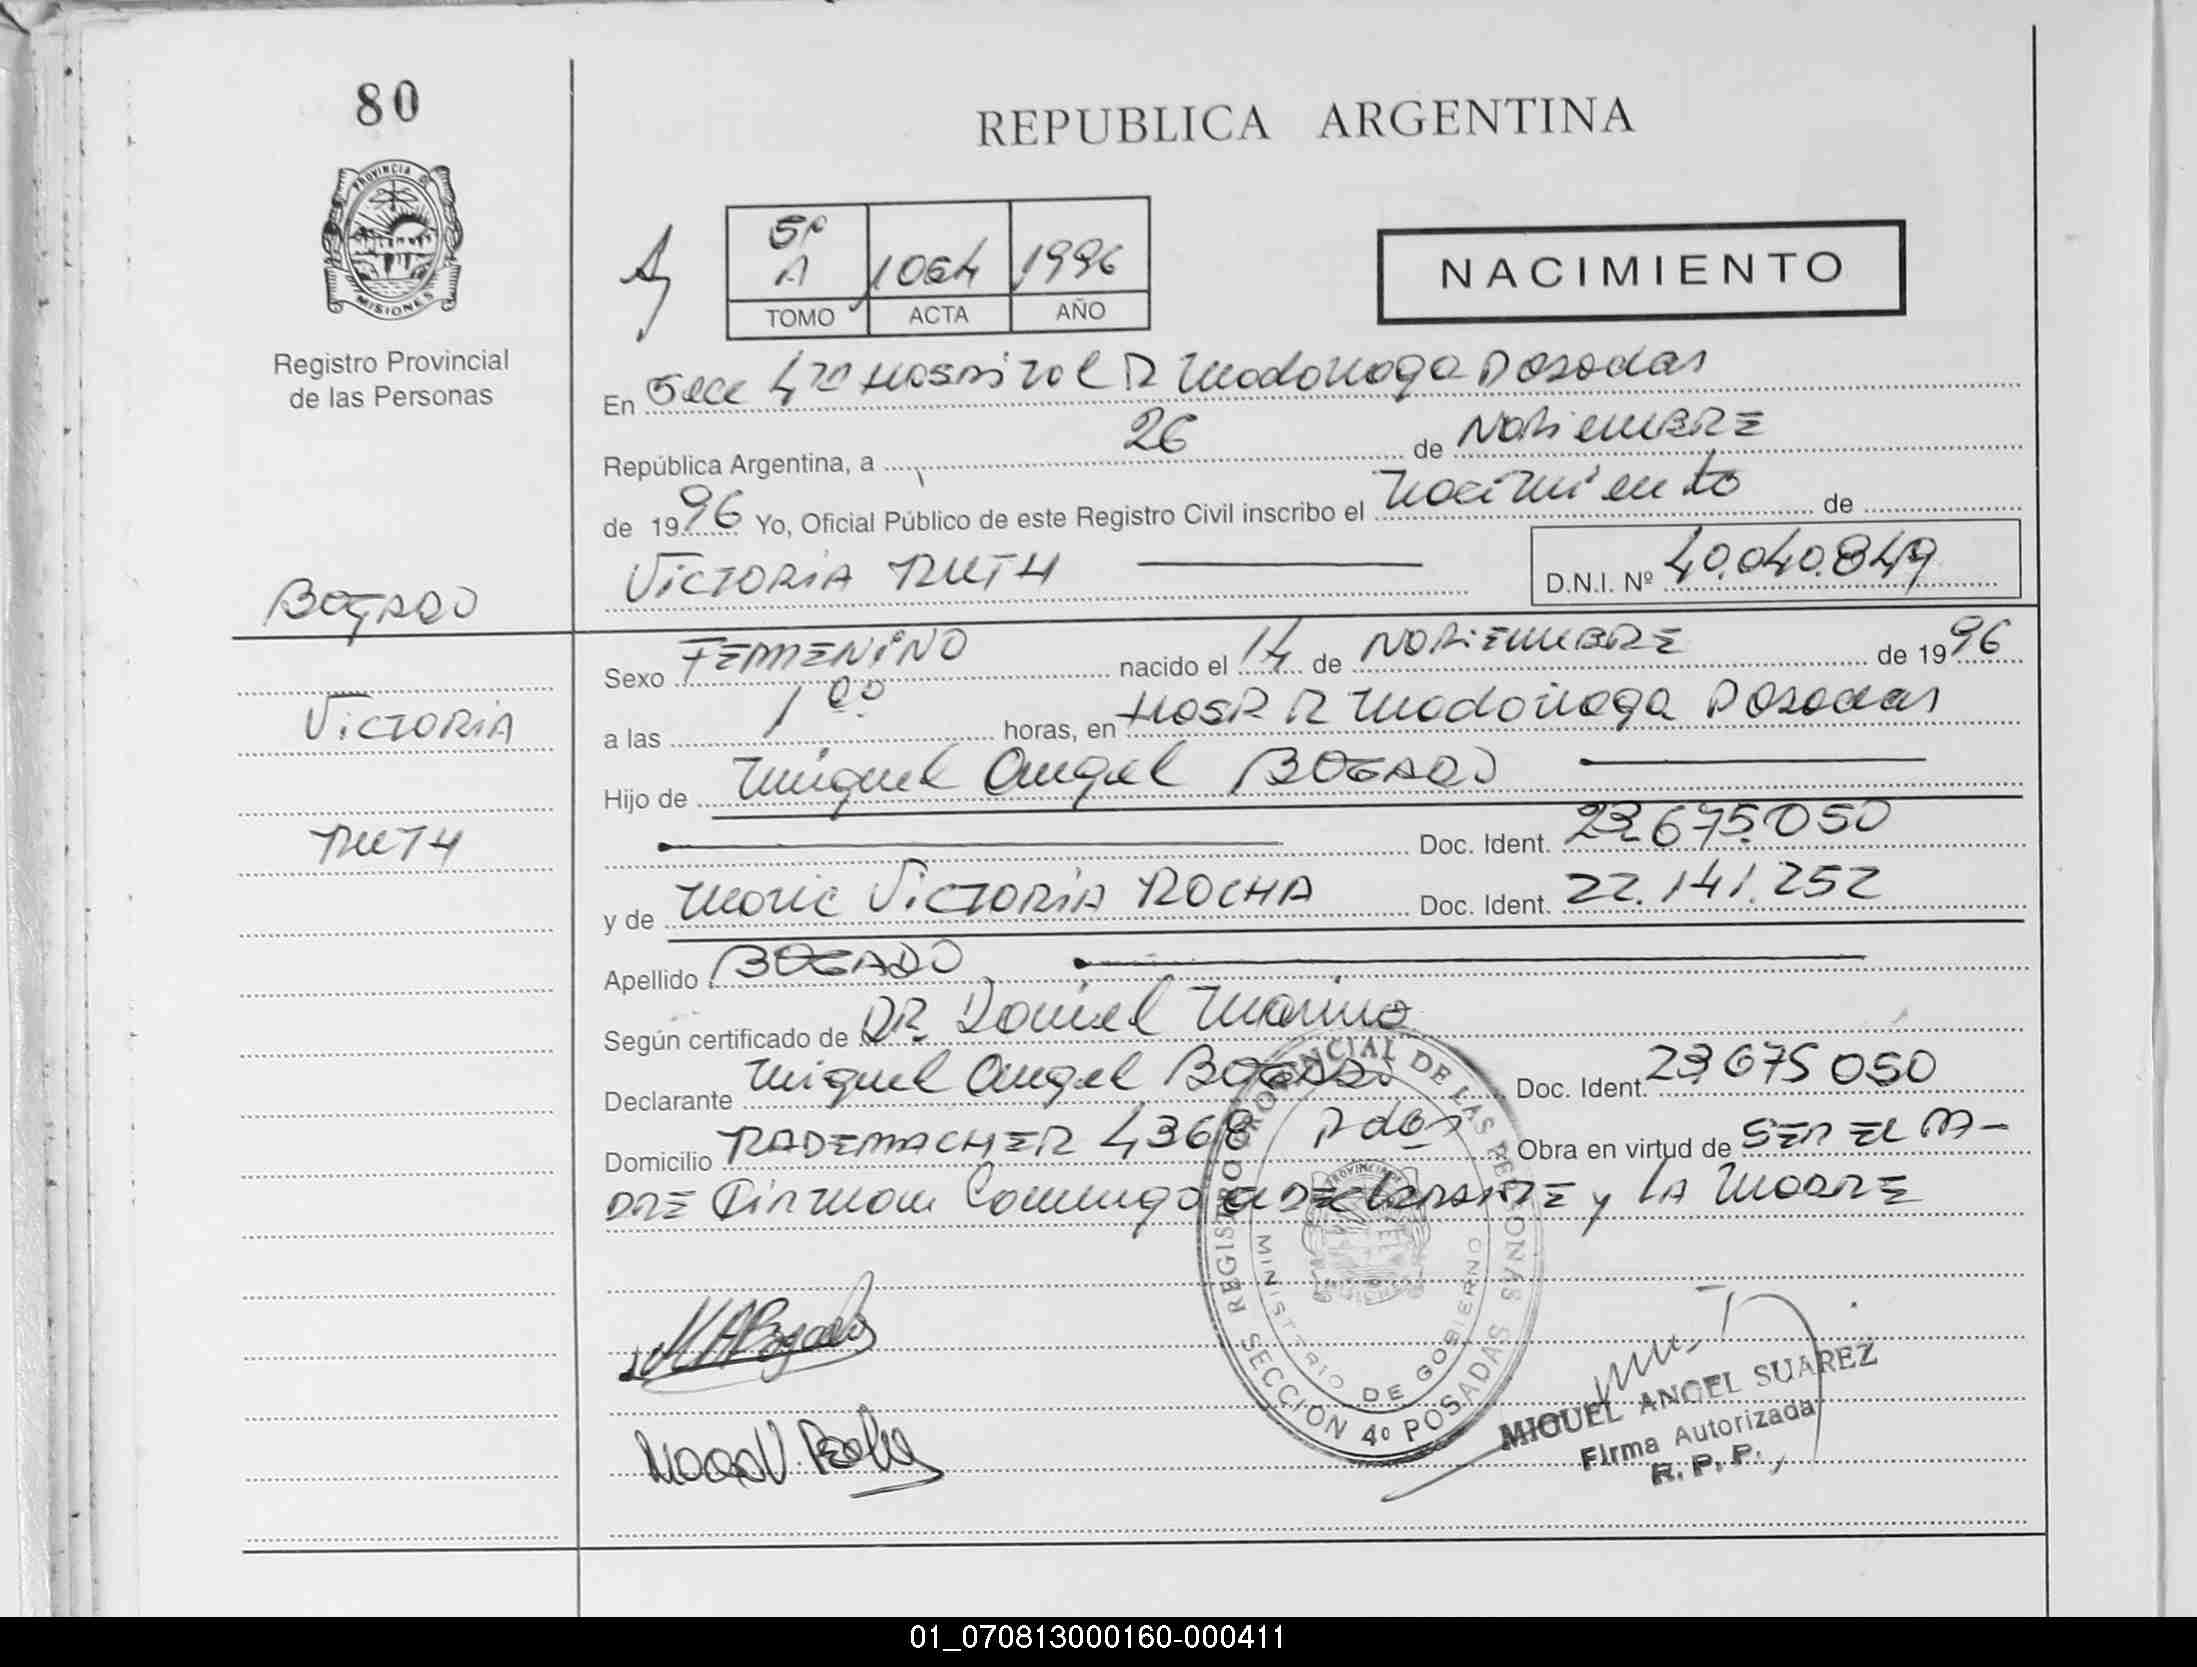 80
REPUBLICA ARGENTINA
PROVINCIA D
MISIONES
Registro Provincial
de las Personas
5º
A 1064 1996
TOMO ACTA AÑO
NACIMIENTO
En Secc 4ta Hospital R Madariaga Posadas
República Argentina, a 26 de NOViEMBRE
de 1996 Yo, Oficial Público de este Registro Civil inscribo el Nacimiento de
VICTORIA RUTH
D.N.I. Nº 40.040.849
BOGADO
VICTORIA
RUTH
Sexo FEMENINO nacido el 14 de NOViEMBRE de 1996
a las 1 00 horas, en HOSP R Madariaga Posadas
Hijo de Miguel Angel BOGADO
Doc. Ident. 23.675.050
y de Maria VICTORIA ROCHA Doc. Ident. 22.141.252
Apellido BOGADO
Según certificado de DR. Daniel Marino
Declarante Miguel Angel BOGADO Doc. Ident. 23.675 050
Domicilio RADEMACHER 4368 Pdas Obra en virtud de SER EL PA-
DRE Firman Conmigo el DEClARANTE y LA MADRE
REGISTRO PROVINCIAL DE LAS PERSONAS
MINISTERIO DE GOBIERNO
SECCION 4º POSADAS
MABogado
Maria V. Rocha
MIGUEL ANGEL SUAREZ
Firma Autorizada
R. P. P.
01_070813000160-000411